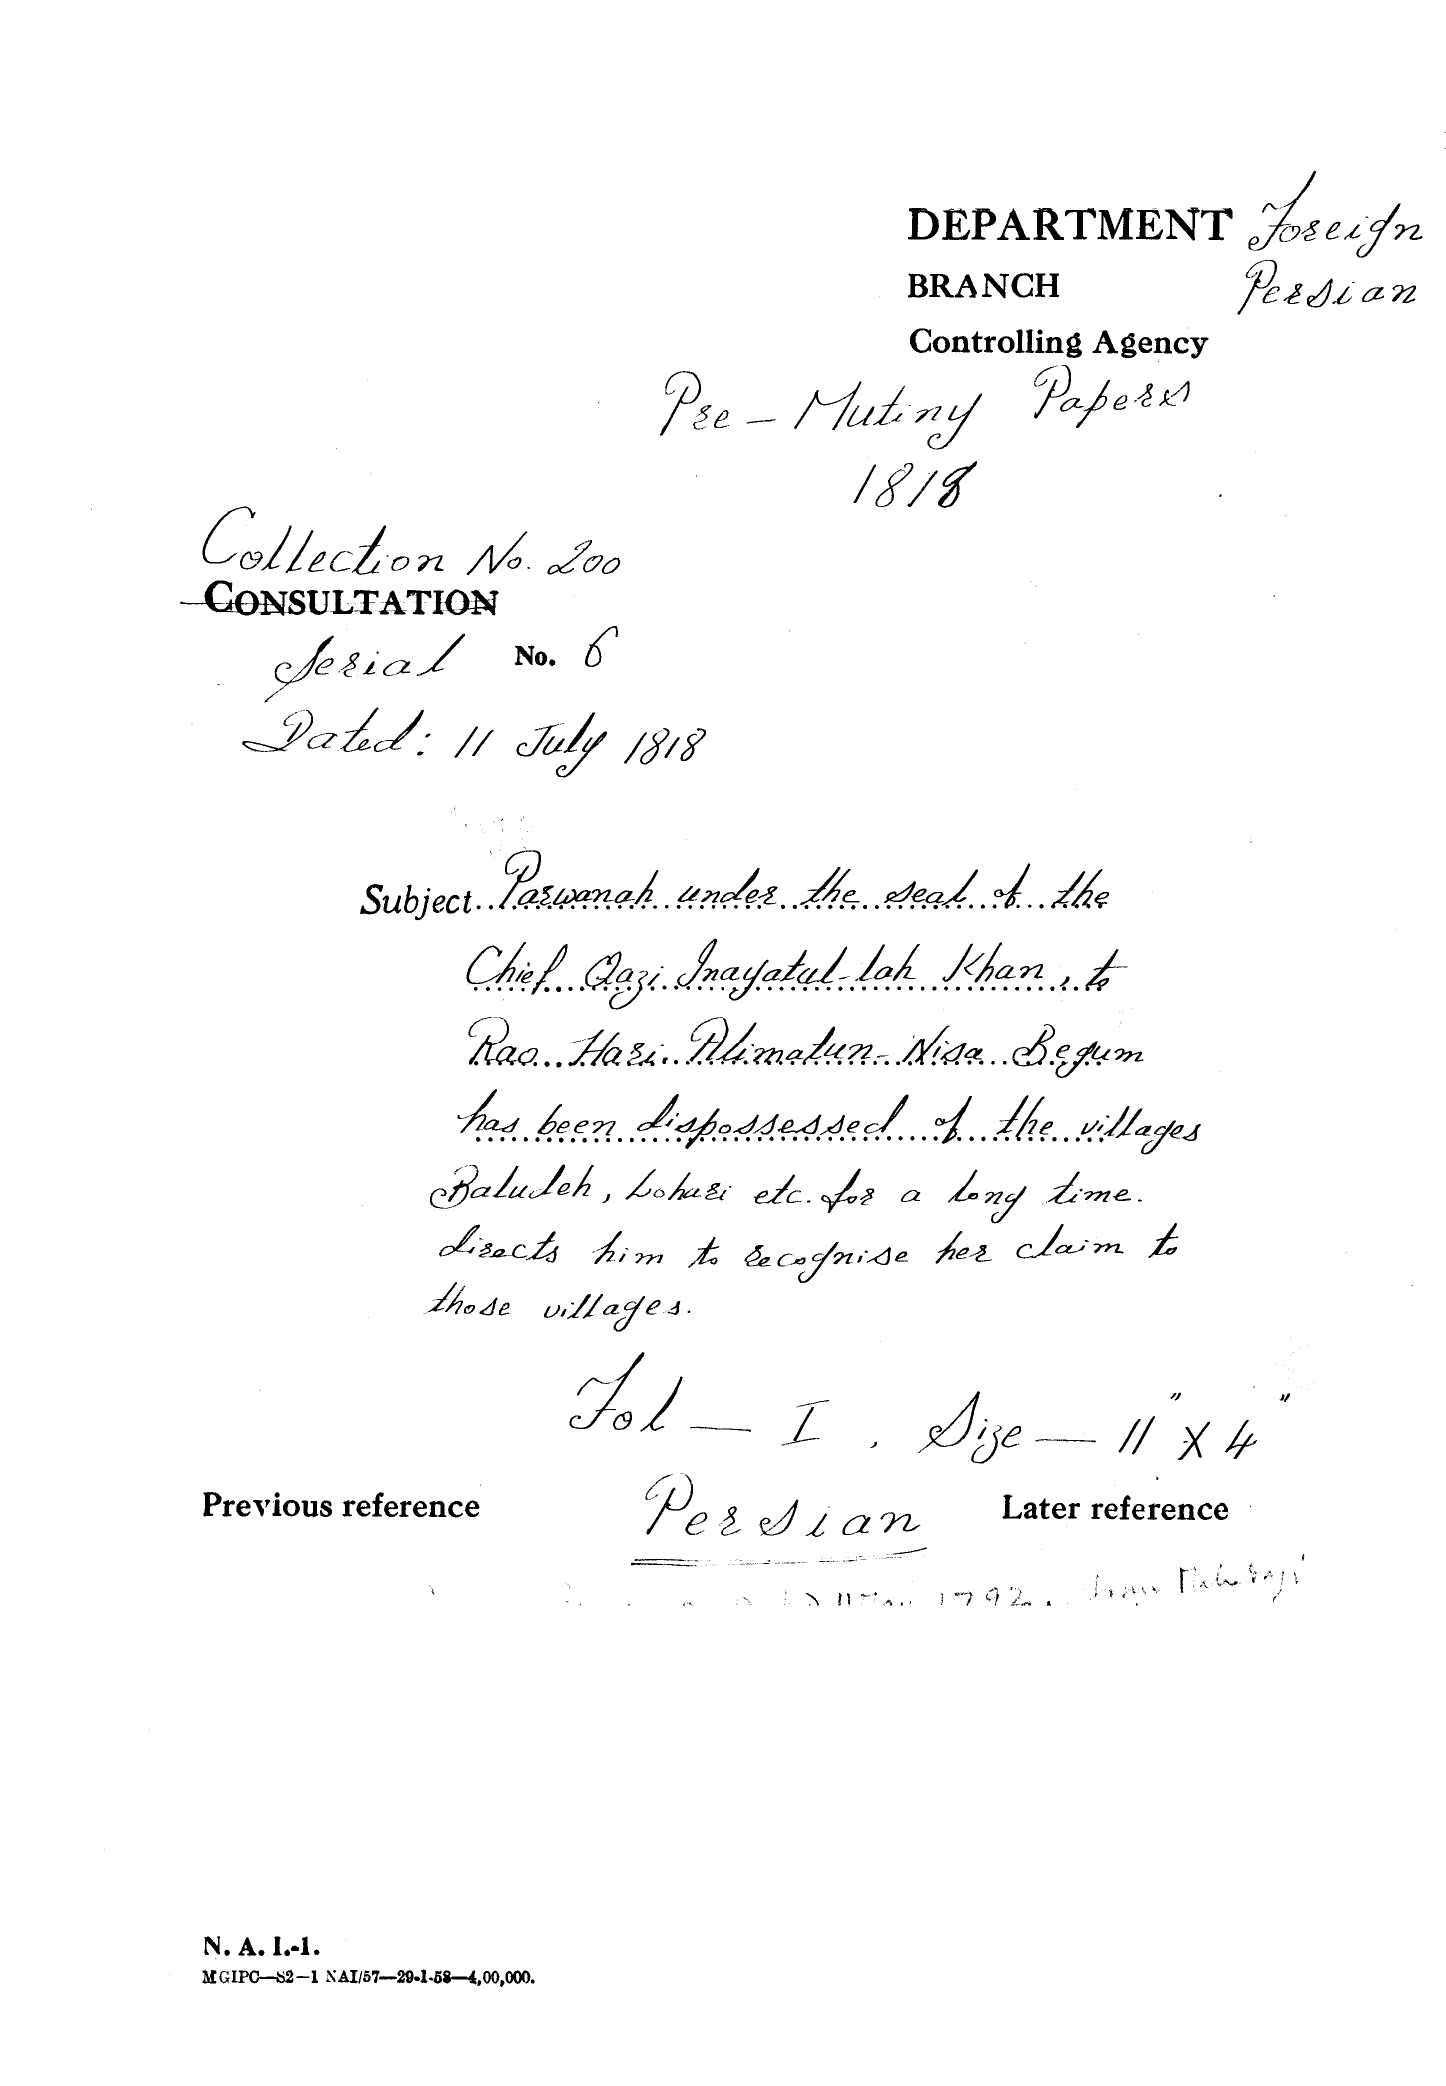 DEPARTMENT Foreign
BRANCH Persian
Controlling Agency
Pre - Mutiny Papers
1818
Collection No. 200
CONSULTATION
Serial No. 6
Dated: 11 July 1818
Subject.. Parwanah under the seal of the
Chief Qazi Inayatul-lah Khan, to
Rao Hari. Alimatun-Nisa Begum
has been dispossessed of the villages
Baludeh, Lohari etc. for a long time.
directs him to recognise her claim to
those villages.
Fol — I . Size — 11" X 4"
Previous reference Persian Later reference
1792.
N. A. I.-1.
MGIPC—S2—1 NAI/57—29-1-58—4,00,000.